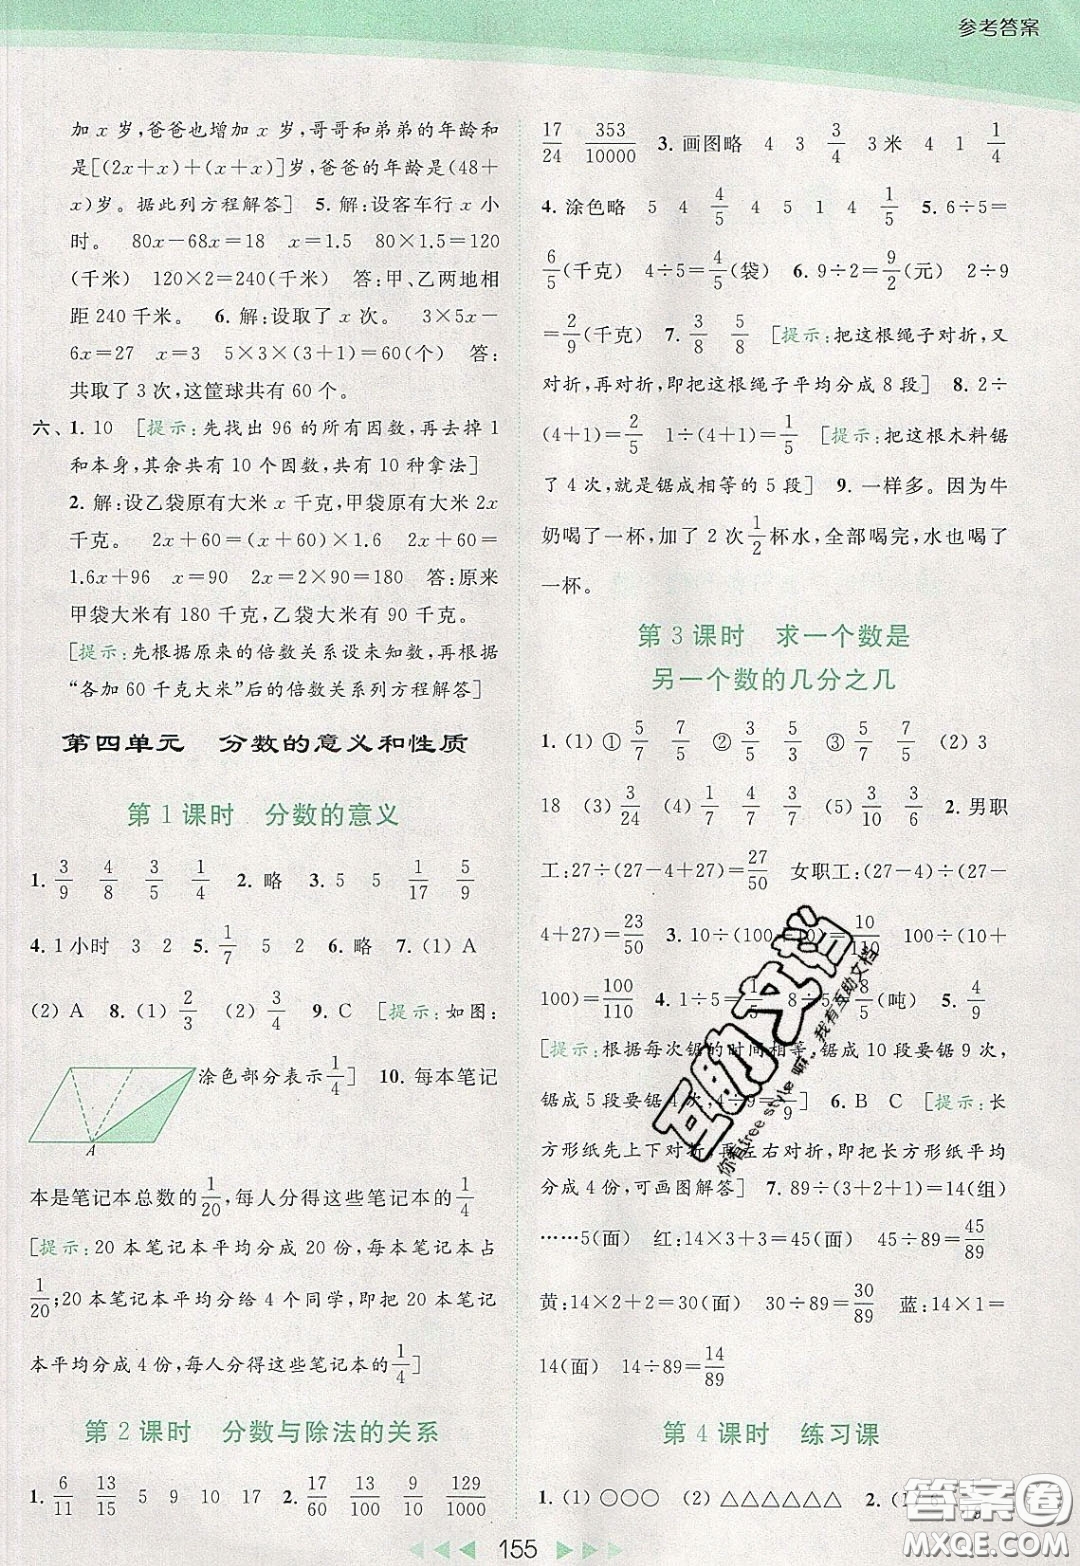 参考答案
加 x 岁,爸爸也增加 x 岁,哥哥和弟弟的年龄和
是[(2x+x)+(x+x)]岁,爸爸的年龄是(48+
x)岁。据此列方程解答] 5. 解:设客车行 x 小
时。 80x-68x=18 x=1.5 80×1.5=120
(千米) 120×2=240(千米) 答:甲、乙两地相
距 240 千米。 6. 解:设取了 x 次。 3×5x-
6x=27 x=3 5×3×(3+1)=60(个) 答:
共取了 3 次,这筐球共有 60 个。
六、1. 10 [提示:先找出 96 的所有因数,再去掉 1
和本身,其余共有 10 个因数,共有 10 种拿法]
2. 解:设乙袋原有大米 x 千克,甲袋原有大米 2x
千克。 2x+60=(x+60)×1.6 2x+60=
1.6x+96 x=90 2x=2×90=180 答:原来
甲袋大米有 180 千克,乙袋大米有 90 千克。
[提示:先根据原来的倍数关系设未知数,再根据
“各加 60 千克大米”后的倍数关系列方程解答]
第四单元 分数的意义和性质
第 1 课时 分数的意义
1. 3/9 4/8 3/5 1/4 2. 略 3. 5 5 1/17 5/9
4. 1 小时 3 2 5. 1/7 5 2 6. 略 7. (1) A
(2) A 8. (1) 2/3 (2) 3/4 9. C [提示:如图:
涂色部分表示 1/4] 10. 每本笔记
A
本是笔记本总数的 1/20,每人分得这些笔记本的 1/4
[提示:20 本笔记本平均分成 20 份,每本笔记本占
1/20;20 本笔记本平均分给 4 个同学,即把 20 本笔记
本平均分成 4 份,每人分得这些笔记本的 1/4]
第 2 课时 分数与除法的关系
1. 6/11 13/15 5 9 10 17 2. 17/60 13/100 9/10 129/1000
17/24 353/10000 3. 画图略 4 3 3/4 3 米 4 1 1/4
4. 涂色略 5 4 4/5 4 5 1 4 1/5 5. 6÷5=
6/5(千克) 4÷5=4/5(袋) 6. 9÷2=9/2(元) 2÷9
=2/9(千克) 7. 3/8 5/8 [提示:把这根绳子对折,又
对折,再对折,即把这根绳子平均分成 8 段] 8. 2÷
(4+1)=2/5 1÷(4+1)=1/5 [提示:把这根木料锯
了 4 次,就是锯成相等的 5 段] 9. 一样多。因为牛
奶喝了一杯,加了 2 次 1/2 杯水,全部喝完,水也喝了
一杯。
第 3 课时 求一个数是
另一个数的几分之几
1. (1) ① 5/7 7/5 ② 3/5 5/3 ③ 5/7 7/5 (2) 3
18 (3) 3/24 (4) 1/7 4/7 3/7 (5) 3/10 3/6 2. 男职
工:27÷(27-4+27)=27/50 女职工:(27-4)÷(27-
4+27)=23/50 3. 10÷(100+10)=10/110 100÷(10+
100)=100/110 4. 1÷5=1/5 8÷5=8/5(吨) 5. 4/9
[提示:根据每次锯的时间相等,锯成 10 段要锯 9 次,
锯成 5 段要锯 4 次,4÷9=4/9] 6. B C [提示:长
方形纸先上下对折,再左右对折,即把长方形纸平均
分成 4 份,可画图解答] 7. 89÷(3+2+1)=14(组)
……5(面) 红:14×3+3=45(面) 45÷89=45/89
黄:14×2+2=30(面) 30÷89=30/89 蓝:14×1=
14(面) 14÷89=14/89
第 4 课时 练习课
1. (1) ○○○ (2) △△△△△△ 2.
155
互助文档
你有free style 嘛,我有互助文档
答案圈
MXQE.COM